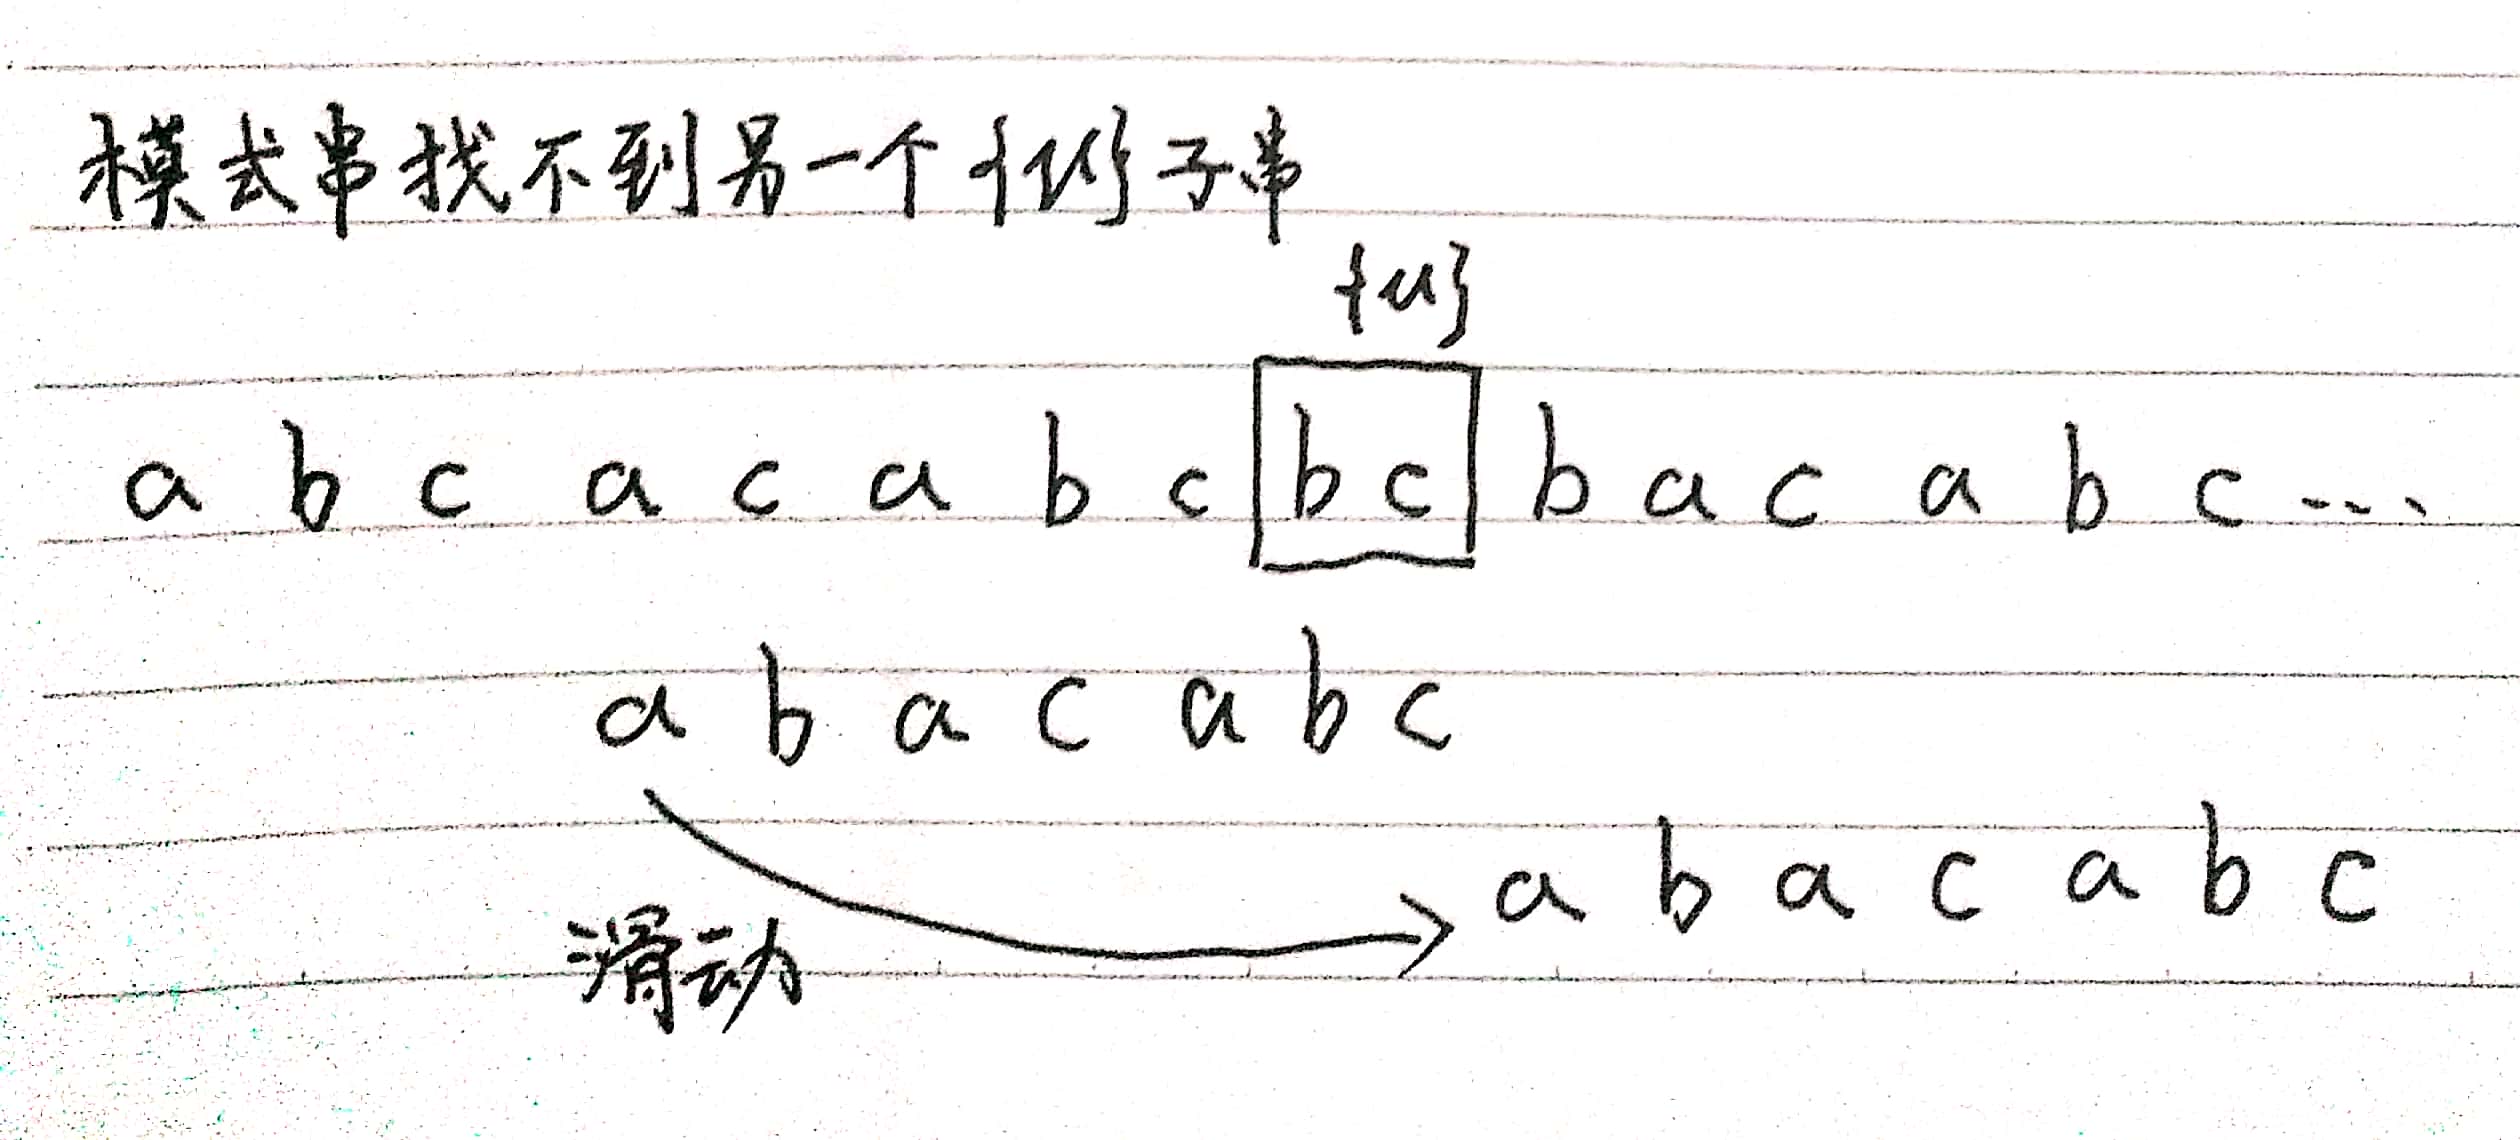 模式串找不到另一个{u}子串
{u}
a b c a c a b c b c b a c a b c ...
a b a c a b c
a b a c a b c
滑动